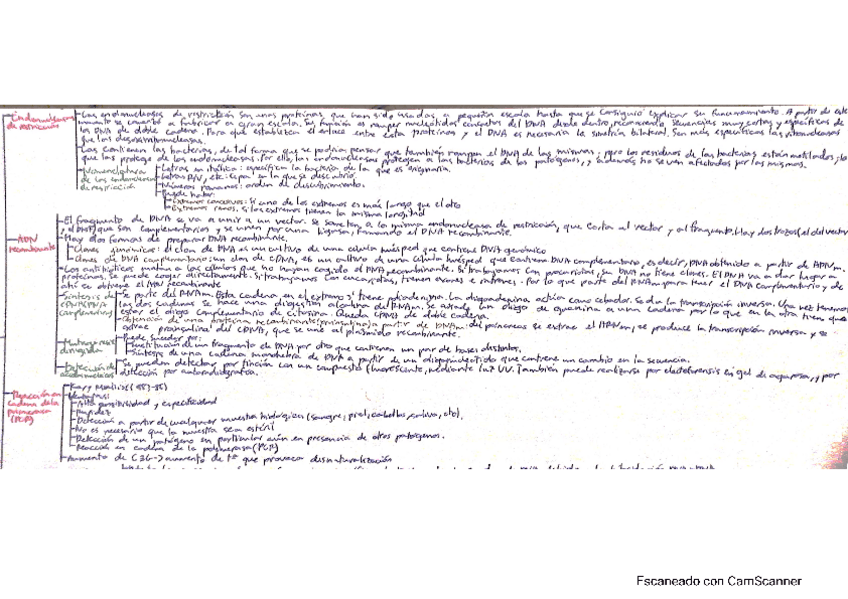 Endonucleasas de restricción
Las endonucleasas de restricción son unas proteínas que han sido usadas a pequeña escala hasta que se consiguió explicar su funcionamiento. A partir de este
se comenzó a fabricar a gran escala. Su función es romper nucleótidos concretos del DNA desde dentro, reconociendo secuencias muy cortas y específicas de
DNA de doble cadena. Para que establezca el enlace entre esta proteínas y el DNA es necesaria la simetría bilateral. Son más específicas las
que las
Las contienen las bacterias, de tal forma que se podría pensar que también rompen el DNA de las mismas, pero los residuos de las bacterias están metilados, lo
que las protege de las endonucleasas. Por ello, las endonucleasas protegen a las bacterias de los patógenos, y además no se ven afectadas por las mismas.
Nomenclatura de las endonucleasas de restricción
Letras en itálica: especifican la bacteria de la que es originaria.
Letras R/N, etc: cepa en la que se descubrió.
Números romanos: orden de descubrimiento.
Puede haber:
Extremos cohesivos: Si uno de los extremos es más largo que el otro
Extremos romos: Si los extremos tienen la misma longitud
ADN recombinante
El fragmento de DNA se va a unir a un vector. Se someten a la misma endonucleasa de restricción, que corta al vector y al fragmento. Hay dos trozos (el del vector
y el DNA) que son complementarios y se unen por una ligasa, formando el DNA recombinante.
Hay dos formas de preparar DNA recombinante.
Clones genómicos: el clon de DNA es un cultivo de una célula huésped que contiene DNA genómico
Clones de DNA complementario: un clon de cDNA, es un cultivo de una célula huésped que contiene DNA complementario, es decir, DNA obtenido a partir de ARNm.
Los antibióticos matan a las células que no hayan cogido el DNA recombinante. Si trabajamos con procariotas, su DNA no tiene clones. El DNA va a dar lugar a
proteínas. Se puede coger directamente. Si trabajamos con eucariotas, tienen exones e intrones. Por lo que parte del RNAm para tener el DNA complementario y de
ahí se obtiene el ADN recombinante
Síntesis de cDNA (DNA complementario)
Se parte del RNAm. Esta cadena en el extremo 3' tiene poliadenina. La oligoadenina actúa como cebador. Se da la transcripción inversa. Una vez tenemos
las dos cadenas se hace una digestión alcalina del RNAm. Se añade un oligo de guanina a una cadena por lo que en la otra tiene que
estar el oligo complementario de citosina. Queda cDNA de doble cadena.
Obtención de una proteína recombinante (proinsulina) a partir de RNAm: del páncreas se extrae el ARNm, se produce la transcripción inversa y se
extrae proinsulina del cDNA, que se une al plásmido recombinante.
Mutagénesis dirigida
Puede suceder por:
Sustitución de un fragmento de DNA por otro que contienen un par de bases distintas.
Síntesis de una cadena monohebra de DNA a partir de un oligonucleótido que contiene un cambio en la secuencia.
Detección de
Se pueden detectar por tinción con un compuesto fluorescente, mediante luz UV. También puede realizarse por electroforesis en gel de agarosa, y por
detección por autorradiografía.
Reacción en cadena de la polimerasa (PCR)
Kary Mullis
Ventajas:
Alta sensitividad y especificidad
Rapidez
Detección a partir de cualquier muestra biológica (sangre, piel, cabellos, saliva, etc).
No es necesario que la muestra sea estéril
Detección de un patógeno en particular aún en presencia de otros patógenos.
Reacción en cadena de la polimerasa (PCR)
Aumento de C≡G → aumento de tª que provoca desnaturalización
Escaneado con CamScanner